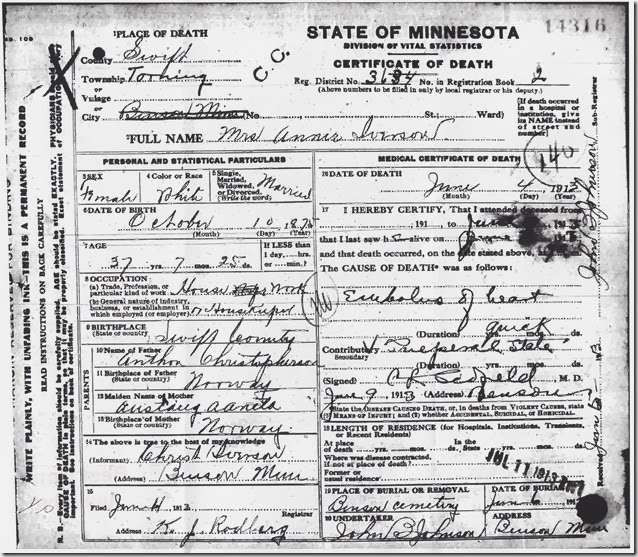 14316
1 PLACE OF DEATH
STATE OF MINNESOTA
DIVISION OF VITAL STATISTICS
CERTIFICATE OF DEATH
County Swift
Township Torning
or
Village
or
City Benson Minn
No. St; Ward)
C. C.
Reg. District No. 3684 No. in Registration Book 2
(Above numbers to be filled in only by local registrar or his deputy.)
[If death occurred in a hospital or institution, give its NAME instead of street and number]
2 FULL NAME Mrs Annie Iverson
240
PERSONAL AND STATISTICAL PARTICULARS
3 SEX
4 Color or Race White
5 Single, Married, Widowed, or Divorced. (Write the word) Married
6 DATE OF BIRTH
October 10 1875
(Month) (Day) (Year)
7 AGE
37 yrs. 7 mos. 25 ds.
If LESS than 1 day, hrs. or min.?
8 OCCUPATION
(a) Trade, Profession, or particular kind of work House Work
(b) General nature of Industry, business, or establishment in which employed (or employer) or Housekeeper
9 BIRTHPLACE
(State or country) Swift County
PARENTS
10 Name of Father
Anthon Christopherson
11 Birthplace of Father
(State or country) Norway
12 Maiden Name of Mother
13 Birthplace of Mother
(State or country) Norway
14 The above is true to the best of my knowledge
(Informant) Christ Iverson
(Address) Benson Minn
15
Filed June 4 1913
Registrar
Address K. J. Rodberg
MEDICAL CERTIFICATE OF DEATH
16 DATE OF DEATH
June 4, 1913
(Month) (Day) (Year)
17 I HEREBY CERTIFY, That I attended deceased from
, 191 , to June 1913
that I last saw h alive on
and that death occurred, on the date stated above, at
The CAUSE OF DEATH was as follows:
Embolus of heart
quick
(Duration) yrs. mos. ds.
Contributory Puerperal State
(Duration) yrs. mos. ds.
(Signed) C L Scofield M. D.
June 9, 1913 (Address) Benson
State the DISEASE CAUSING DEATH, or, in deaths from VIOLENT CAUSES, state MEANS OF INJURY; and whether ACCIDENTAL, SUICIDAL, or HOMICIDAL.
18 LENGTH OF RESIDENCE (for Hospitals, Institutions, Transients, or Recent Residents)
At place of death yrs. mos. ds. In the State yrs. mos. ds.
Where was disease contracted, if not at place of death?
Former or usual residence
JUL 11 1913
19 PLACE OF BURIAL OR REMOVAL
Benson Cemetery
DATE OF BURIAL
June 6 1913
20 UNDERTAKER
John B Johnson
Address Benson Minn
Sub-Registrar
Received
WRITE PLAINLY, WITH UNFADING INK—THIS IS A PERMANENT RECORD
READ INSTRUCTIONS ON BACK CAREFULLY